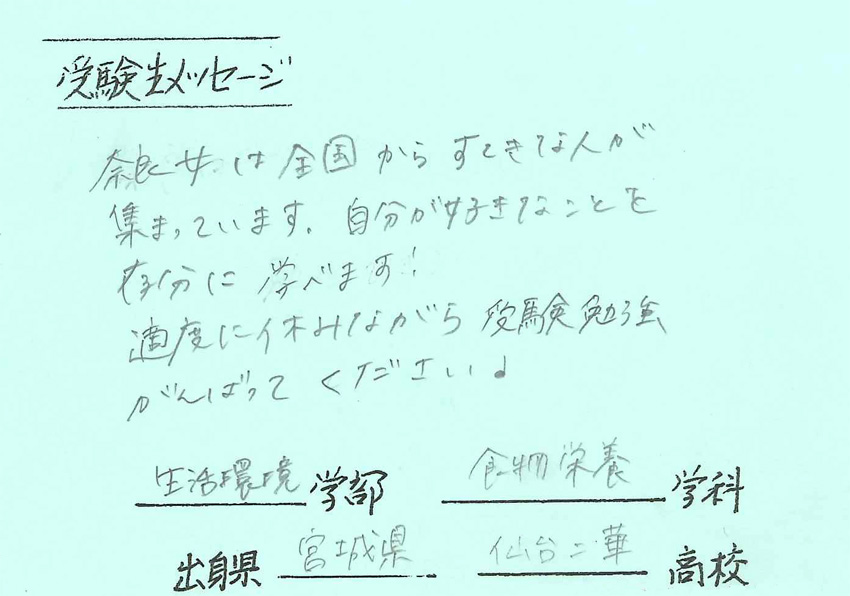 受験生メッセージ
奈良女は全国からすてきな人が
集まっています。自分が好きなことを
存分に学べます!
適度に休みながら受験勉強
がんばってください♩
生活環境学部 食物栄養学科
出身県 宮城県 仙台二華高校